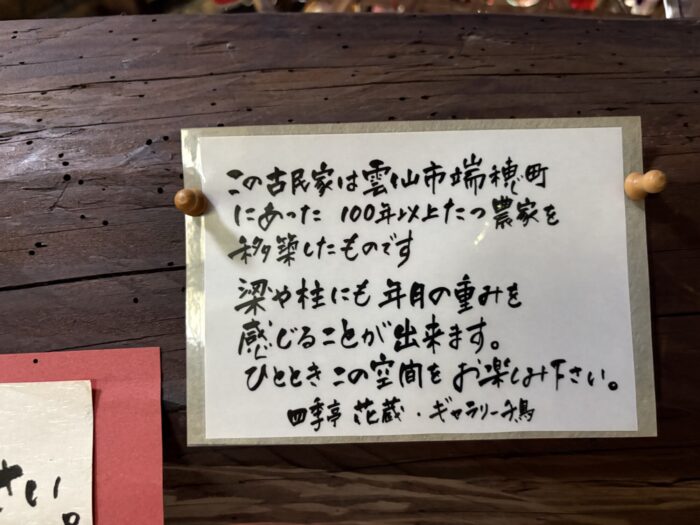 この古民家は雲仙市端穂町
にあった 100年以上たつ農家を
移築したものです
梁や柱にも年月の重みを
感じることが出来ます。
ひとときこの空間をお楽しみ下さい。
四季亭 花蔵・ギャラリー千鳥
さい
。